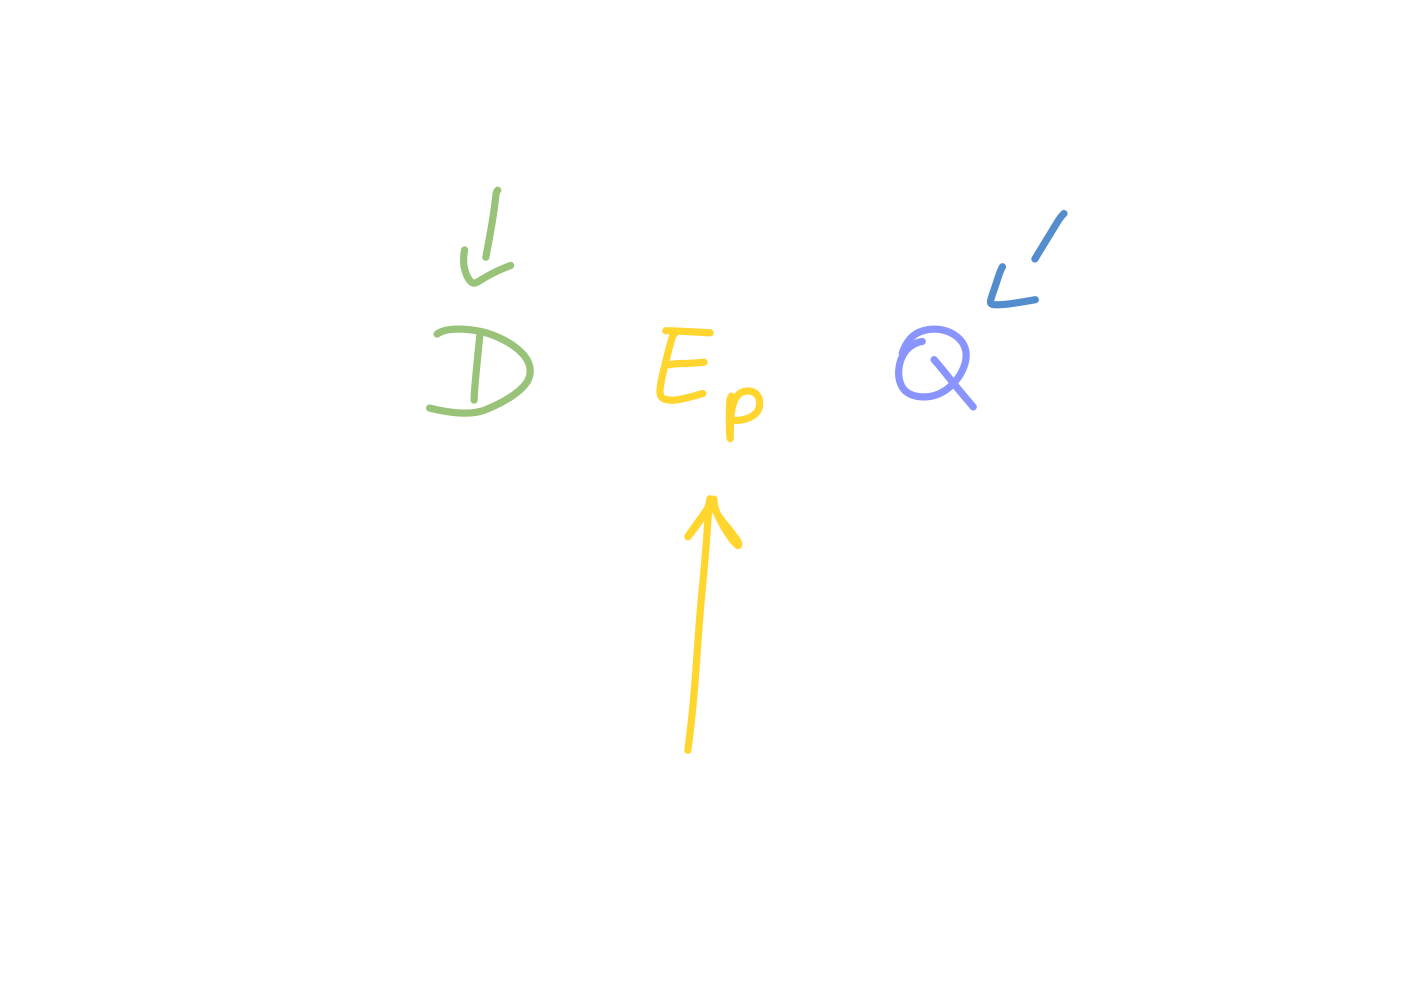 D E_p Q